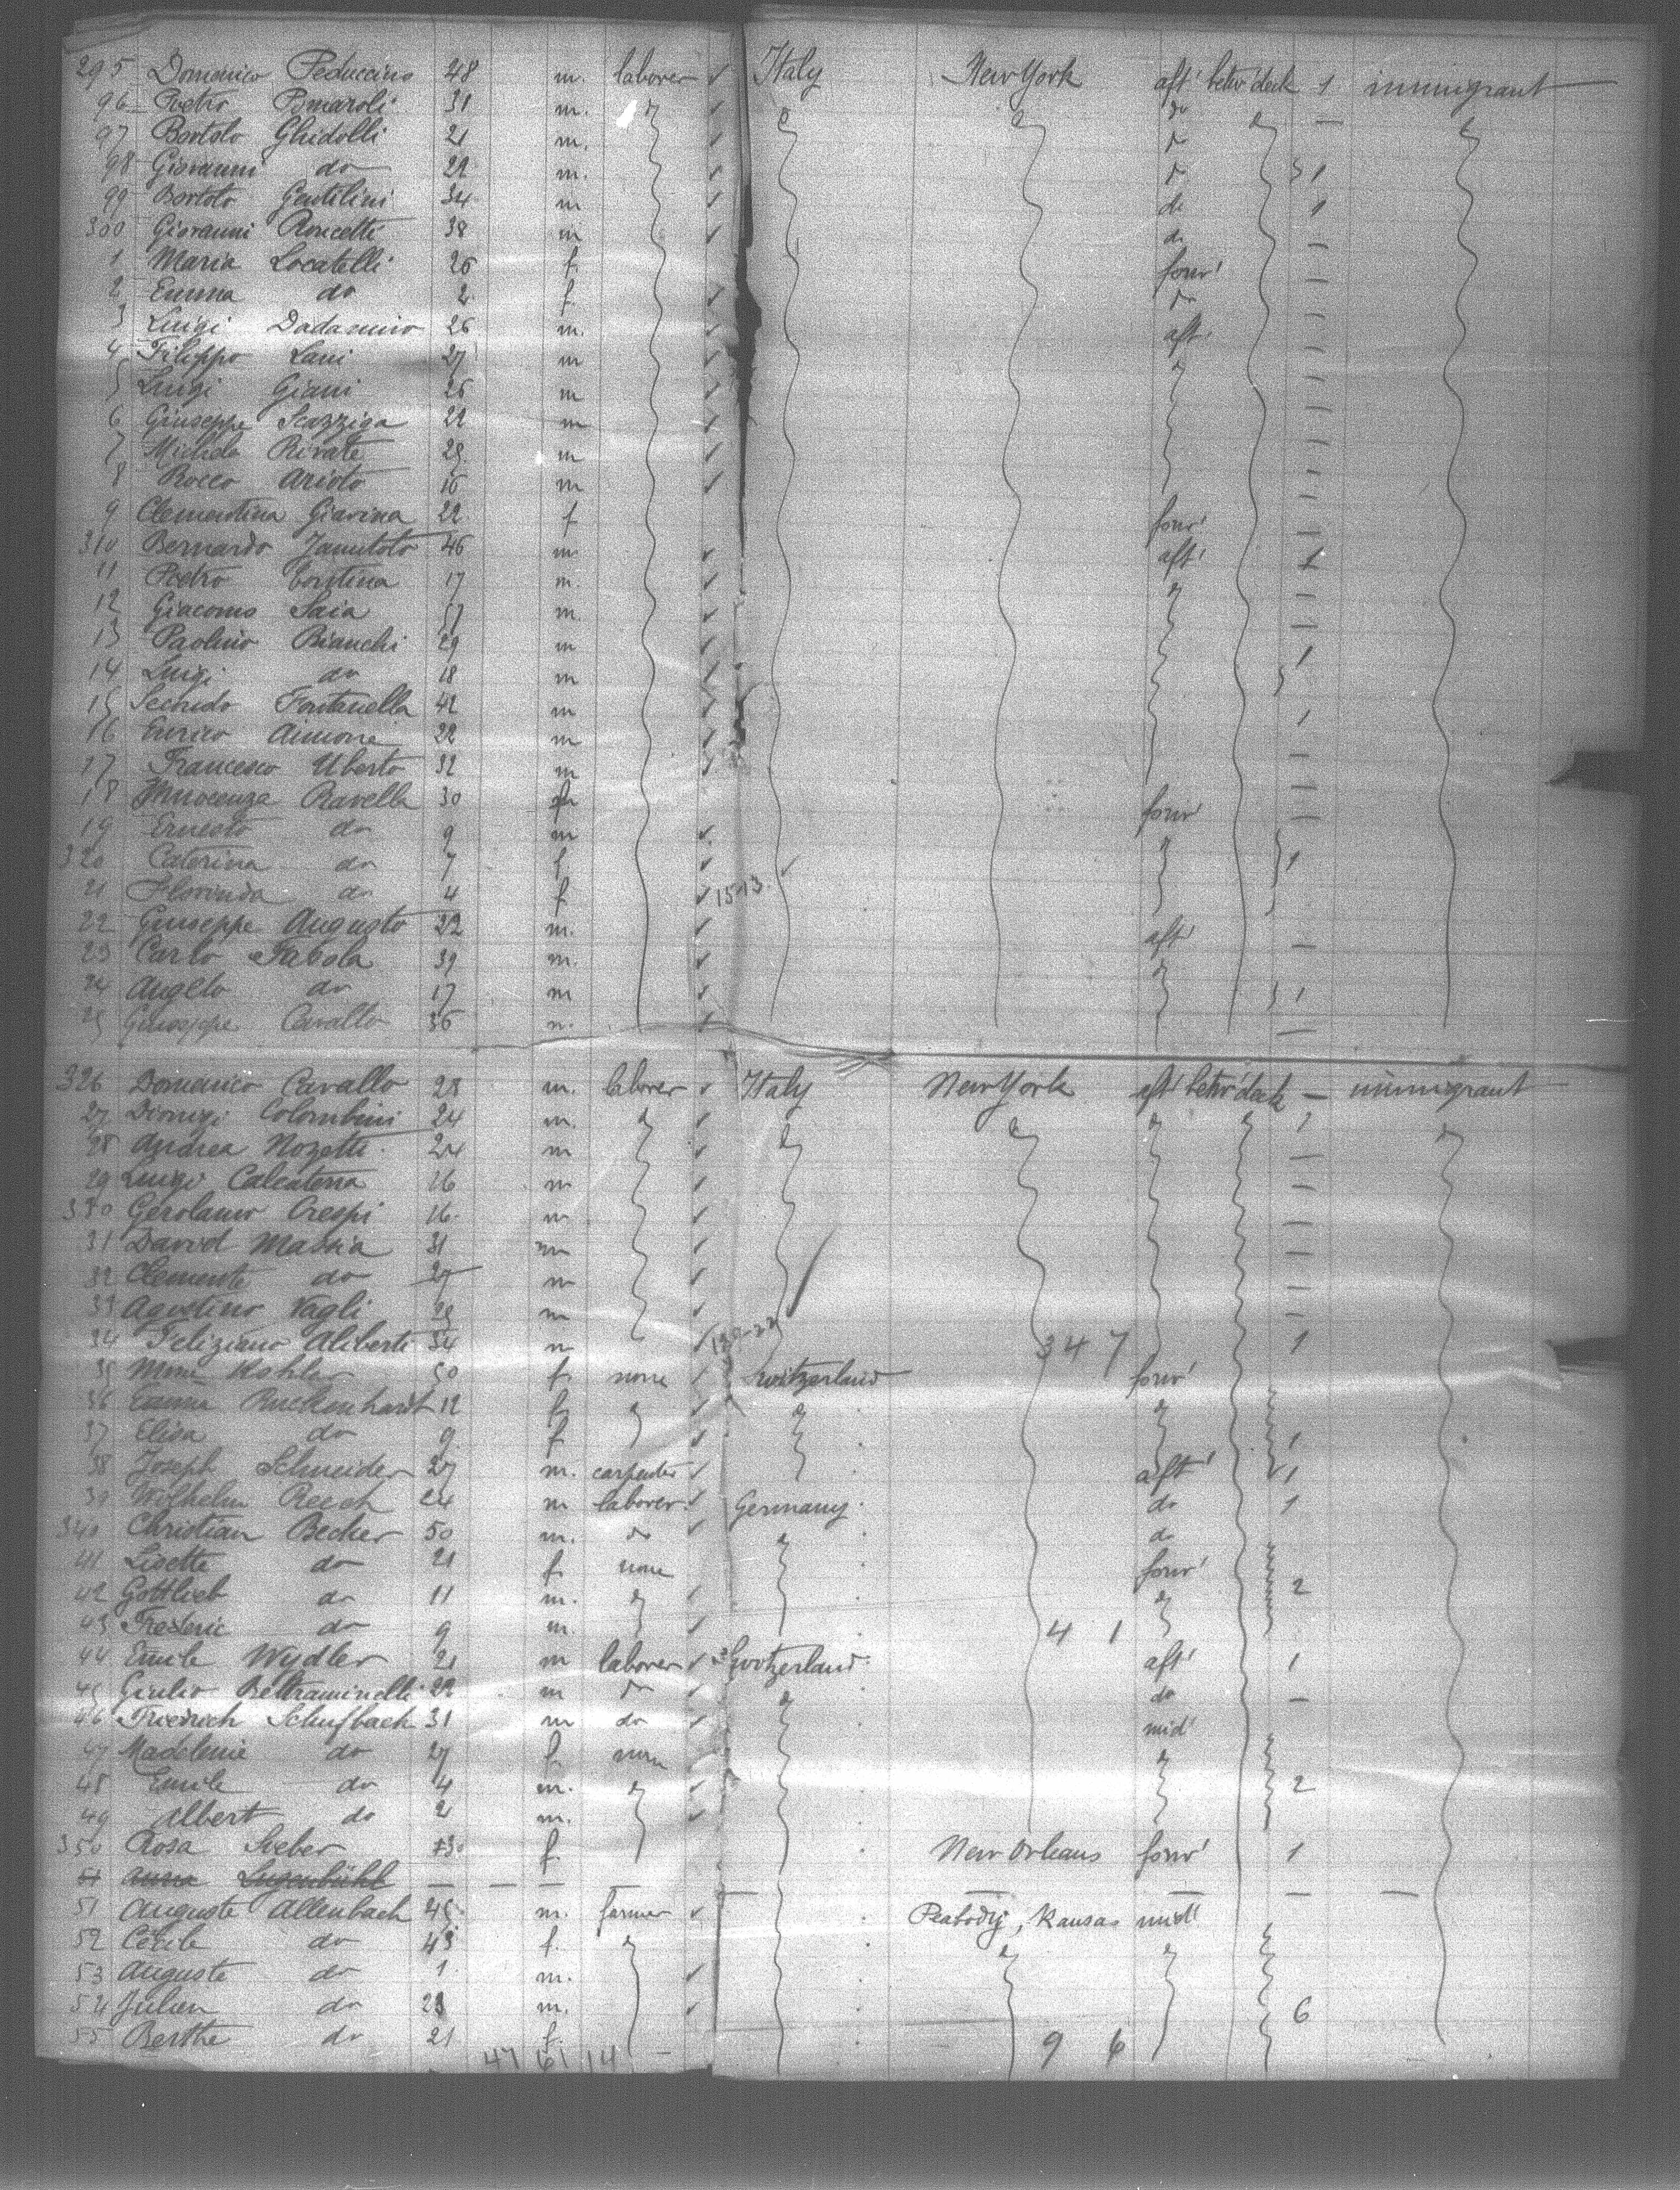 295 Domenico Peduccino 48 m. laborer ✓ Italy New York aft' betw' deck 1 immigrant
96 Pietro Pomaroli 31 m. ✓ do —
97 Bortolo Ghidolli 21 m. ✓ do
98 Giovanni do 22 m. ✓ do 1
99 Bortolo Gentilini 34 m ✓ do 1
300 Giovanni Roncetti 38 m ✓ do —
1 Maria Locatelli 26 f. forw' —
2 Emma do 2 f. ✓ do —
3 Luigi Dadamino 26 m. ✓ aft' —
4 Filippo Lani 27 m ✓ —
5 Luigi Giani 26 m ✓ —
6 Giuseppe Scazziga 22 m ✓ —
7 Michele Rivate 28 m ✓ —
8 Rocco Arioto 16 m ✓ —
9 Clementina Giavina 22 f forw' —
310 Bernardo Janutolo 46 m ✓ aft' 1
11 Pietro Contina 17 m. ✓ —
12 Giacomo Saia 17 m. ✓ —
13 Paolino Bianchi 29 m ✓ 1
14 Luigi do 18 m ✓
15 Secundo Fontanella 42 m ✓ 1
16 Enrico Aimone 22 m ✓ —
17 Francesco Uberto 32 m ✓ —
18 Innocenza Ravella 30 f forw' —
19 Ernesto do 9 m ✓
320 Caterina do 7 f. ✓ 1
21 Florinda do 4 f ✓ 15-13
22 Giuseppe Augusto 22 m. ✓ aft' —
23 Carlo Fabola 39 m. ✓
24 Angelo do 17 m ✓ 1
25 Giuseppe Cavallo 36 m. ✓ —
326 Domenico Cavallo 28 m. laborer ✓ Italy New York aft' betw' deck — immigrant
27 Dionigi Colombini 24 m. ✓ 1
28 Andrea Nozetti 24 m ✓ —
29 Luigi Calcaterra 16 m ✓ —
330 Gerolamo Crespi 16 m ✓ —
31 David Massia 31 m ✓ —
32 Clemente do 27 m ✓ —
33 Agostino Vagli 28 m ✓ —
34 Feliziano Aliberti 34 m ✓ 347 1
35 Kohler 50 f. none Switzerland forw'
36 Emma Ruckenhardt 12 f. ✓
37 Elisa do 9 f ✓ 1
38 Joseph Schneider 27 m. carpenter ✓ aft' 1
39 Wilhelm Reech 24 m laborer ✓ Germany do 1
340 Christian Becker 50 m. do ✓ do
41 Lisette do 21 f. none forw'
42 Gottlieb do 11 m. 2
43 Frederic do 9 m. ✓ 4 1
44 Emile Wydler 21 m laborer ✓ Switzerland aft' 1
45 Giulio Beltraminelli 22 m do ✓ do —
46 Friedrich Schufbach 31 m do ✓ mid'
47 Madelenie do 27 f. none
48 Emile do 4 m. ✓ 2
49 Albert do 2 m. ✓
350 Rosa Sieber 30 f. New Orleans forw' 1
51 Anna Lugenbühl — — — — — — — — —
51 Auguste Allenbach 45 m. farmer ✓ Peabody, Kansas mid'
52 Cécile do 43 f.
53 Auguste do 1 m. ✓
54 Julien do 23 m. ✓ 6
55 Berthe do 21 f. 9 6
47 61 14 —